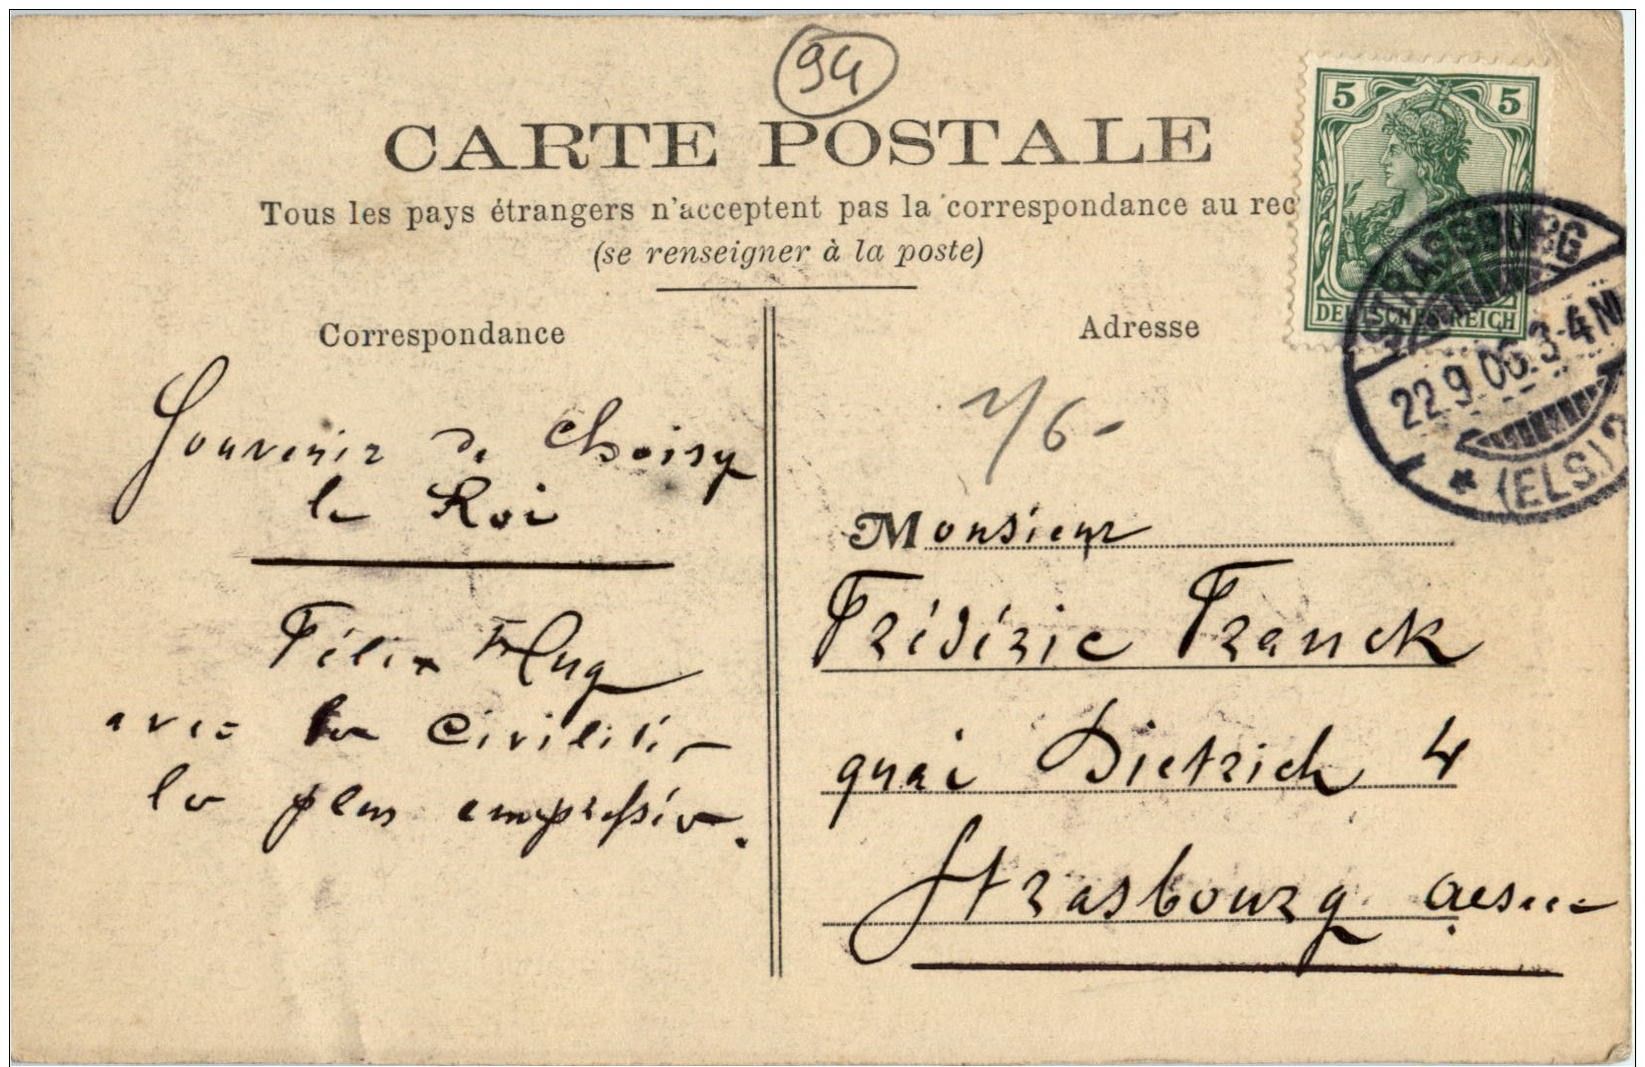 94
CARTE POSTALE
Tous les pays étrangers n'acceptent pas la correspondance au rec
(se renseigner à la poste)
5 5
DEUTSCHES REICH
STRASSBURG
22.9.06.3-4N
* (ELS.) 2
Correspondance
Souvenir de Choisy
le Roi
Félix Hug
avec les Civilités
les plus empressées.
Adresse
1/6-
Monsieur
Frédéric Franck
quai Dietrich 4
Strasbourg Alsace